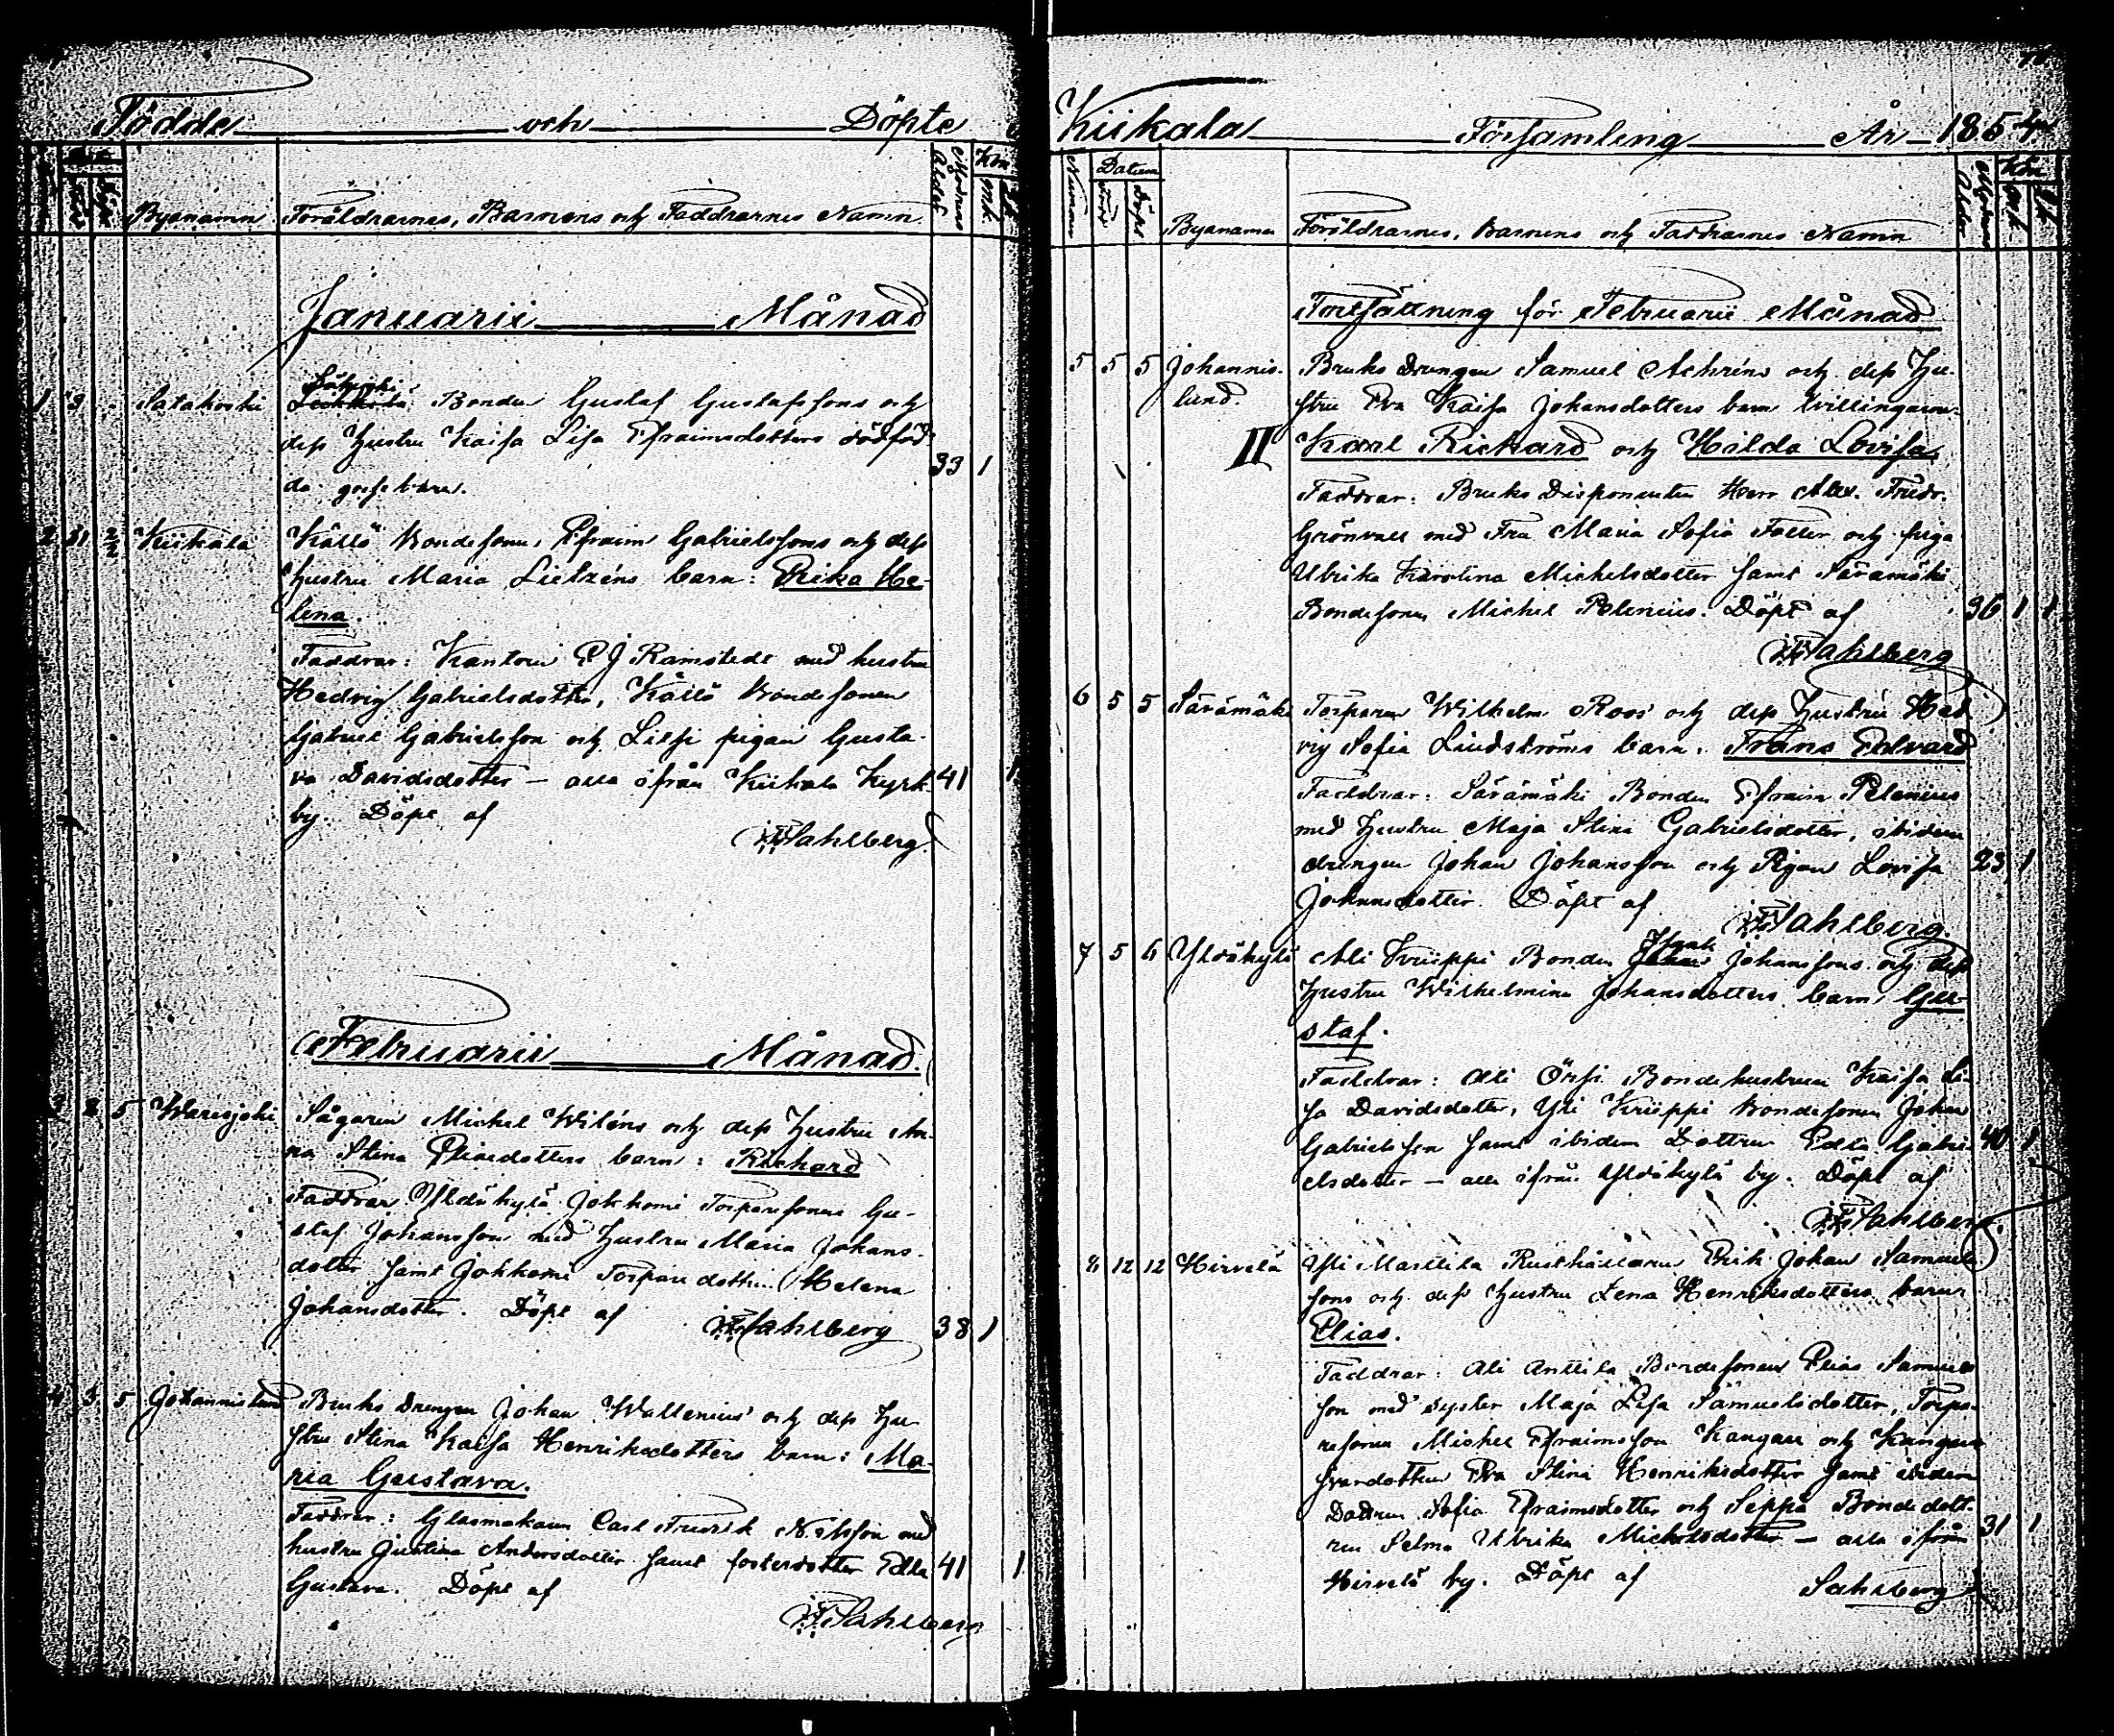 Födde och Döpte
Byanamn Föräldrarnes, Barnens och Faddrarnes Namn Modrens Ålder Kön Mk.
Januarii Månad
1 9 Satakoski Bonden Gustaf Gustafssons och
dess Hustru Kaisa Lisa Efraimsdotters dödföd-
da gossebarn. 33 1
2 31 2/2 Kiikala Källö Bondesonen Efraim Gabrielssons och dess
Hustru Maria Lietzéns barn: Erika He-
lena.
Faddrar: Kantorn E J Ramstedt med hustru
Hedvig Gabrielsdotter, Källö Bondesonen
Gabriel Gabrielsson och pigan Gusta-
va Davidsdotter – alla ifrån Kiikala Kyrk- 41 1
by. Döpt af
Sahlberg.
Februarii Månad.
2 5 Waresjoki Sågaren Michel Wiléns och dess Hustru An-
na Stina Eliaedotters barn: Richard
Faddrar Yltäkylä Jokkomi Torparesonen Gu-
staf Johansson med Hustru Maria Johans-
dotter samt Jokkomi Torparedottern Helena
Johansdotter. Döpt af Sahlberg 38 1
4 3 5 Johannislund Bruks Drengen Johan Wallenius' och dess Hu-
stru Stina Kaisa Henriksdotters barn: Ma-
ria Gustava.
Faddrar: Glasmakaren Carl Fredrik Nilsson med
hustru Justina Andersdotter samt fosterdotter Edla 41 1
Gustava. Döpt af
Sahlberg
Kiikala Församling År 1854
Nummer Datum Född Döpt Byanamn Föräldrarnes, Barnens och Faddrarnes Namn Modrens Ålder Kön Mk.
Fortsättning för Februarii Månad
5 5 5 Johannis- Bruks Drengen Samuel Achréns och dess Hu-
lund. stru Eva Kaisa Johansdotters barn tvillingarne
II Karl Rickard och Hilda Lovisa
Faddrar: Bruks Disponenten Herr Alex. Fredr.
Grönvall med Fru Maria Sofia Faller och piga
Ulrika Karolina Michelsdotter samt Säramäki
Bondesonen Michel Polenius. Döpt af 36 1 1
Sahlberg
6 5 5 Säramäki Torparen Wilhelm Roos' och dess Hustru Hed-
vig Sofia Lindströms barn: Frans Edvard
Faddrar: Säramäki Bonden Efraim Polenius
med Hustru Maja Stina Gabrielsdotter, ibidem
drengen Johan Johansson och Pigan Lovisa 23 1
Johansdotter. Döpt af
Sahlberg.
7 5 6 Yltäkylä Ali Krüppi Bonden Johanssons och dess
Hustru Wilhelmina Johansdotters barn Gu-
staf.
Faddrar: Ali Örsi Bondehustrun Kaisa Li-
sa Davidsdotter, Yli Krüppi Bondesonen Johan
Gabrielsson samt ibidem Dottren Edla Gabri- 40 1
elsdotter – alla ifrån Yltäkylä by. Döpt af
Sahlberg.
8 12 12 Hirvelä Yli Marttila Rusthållaren Erik Johan Samuels-
sons och dess Hustru Lena Henriksdotters barn
Elias.
Faddrar: Ali Anttila Bondesonen Elias Samuels-
son med syster Maja Lisa Samuelsdotter, Torpa-
resonen Michel Efraimsson Kangas och Kangas
Eva Stina Henriksdotter samt ibidem
Dottren Sofia Efraimsdotter och Seppä Bondedott-
ren Selma Ulrika Michelsdotter – alla ifrån 31 1
Hirvelä by. Döpt af Sahlberg